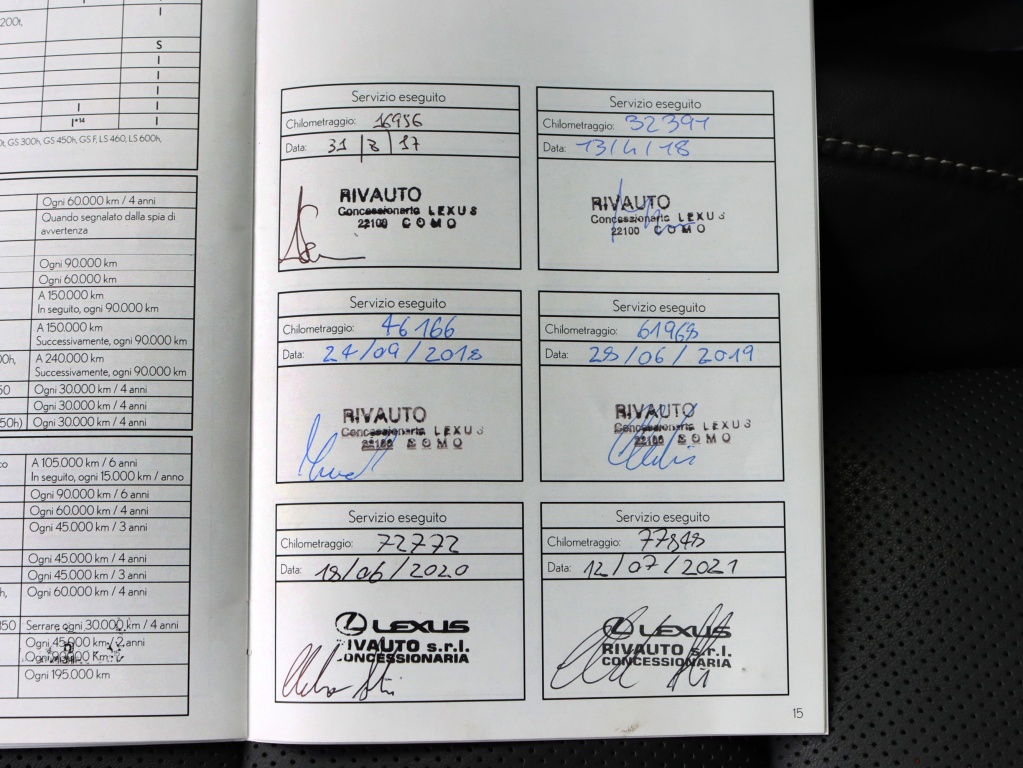 200t,
I
S
I
I
I
I
I
I*14
I
0t, GS 300h, GS 450h, GS F, LS 460, LS 600h,
Ogni 60.000 km / 4 anni
Quando segnalato dalla spia di
avvertenza
Ogni 90.000 km
Ogni 60.000 km
A 150.000 km
In seguito, ogni 90.000 km
A 150.000 km
Successivamente, ogni 90.000 km
00h,
A 240.000 km
Successivamente, ogni 90.000 km
50
Ogni 30.000 km / 4 anni
Ogni 30.000 km / 4 anni
50h)
Ogni 30.000 km / 4 anni
co
A 105.000 km / 6 anni
In seguito, ogni 15.000 km / anno
Ogni 90.000 km / 6 anni
Ogni 60.000 km / 4 anni
Ogni 45.000 km / 3 anni
Ogni 45.000 km / 4 anni
Ogni 45.000 km / 3 anni
h,
Ogni 60.000 km / 4 anni
350
Serrare ogni 30.000 km / 4 anni
Ogni 45.000 km / 2 anni
Ogni km
Ogni 195.000 km
Servizio eseguito
Chilometraggio: 16956
Data: 31 | 3 | 17
RIVAUTO
Concessionaria LEXUS
22100 COMO
Servizio eseguito
Chilometraggio: 32391
Data: 13/4/18
RIVAUTO
Concessionaria LEXUS
22100 COMO
Servizio eseguito
Chilometraggio: 46166
Data: 24/09/2018
RIVAUTO
Concessionaria LEXUS
22100 COMO
Servizio eseguito
Chilometraggio: 61968
Data: 28/06/2019
RIVAUTO
Concessionaria LEXUS
22100 COMO
Servizio eseguito
Chilometraggio: 72772
Data: 18/06/2020
LEXUS
RIVAUTO s.r.l.
CONCESSIONARIA
Servizio eseguito
Chilometraggio: 77848
Data: 12/07/2021
LEXUS
RIVAUTO s.r.l.
CONCESSIONARIA
15